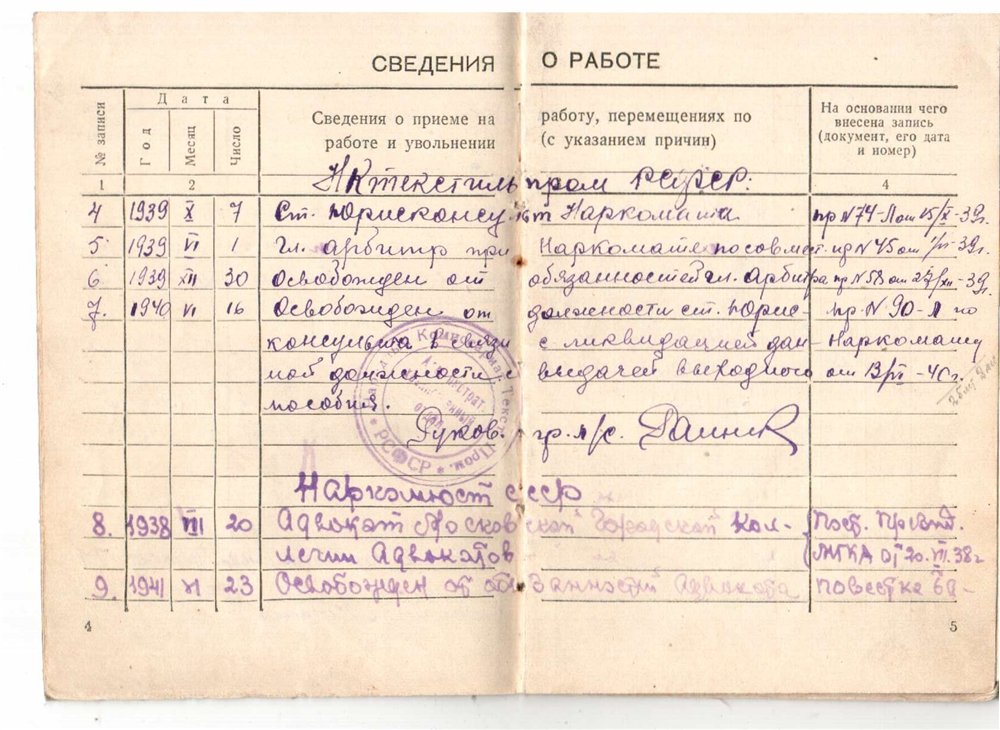 СВЕДЕНИЯ О РАБОТЕ
№ записи
Дата
Год
Месяц
Число
Сведения о приеме на работу, перемещениях по
работе и увольнении (с указанием причин)
На основании чего
внесена запись
(документ, его дата
и номер)
1 2 4
НКтекстильпром РСФСР.
4 1939 X 7 Ст. Юрисконсульт Наркомата пр N 74-Л от 15/X-39г.
5 1939 VI 1 Гл. арбитр при Наркомате по совмест. N 45 от 1/VI-39г.
6 1939 XII 30 Освобожден от обязанностей гл. Арбитра пр. N 58 от 27/XII-39г.
7. 1940 VI 16 Освобожден от должности ст. Юрис- пр. N 90-Л по
консульта в связи с ликвидацией дан- Наркомату
ной должности с выдачей выходного от 13/VI-40г.
пособия.
Руков. гр. л/с.
РСФСР
Наркомюст СССР
8. 1938 VIII 20 Адвокат Московской Городской Кол- Пост. Презид.
легии Адвокатов МГКА от 20.VIII.38г
9. 1941 XI 23 Освобожден от обязанностей Адвоката повестка
4 5